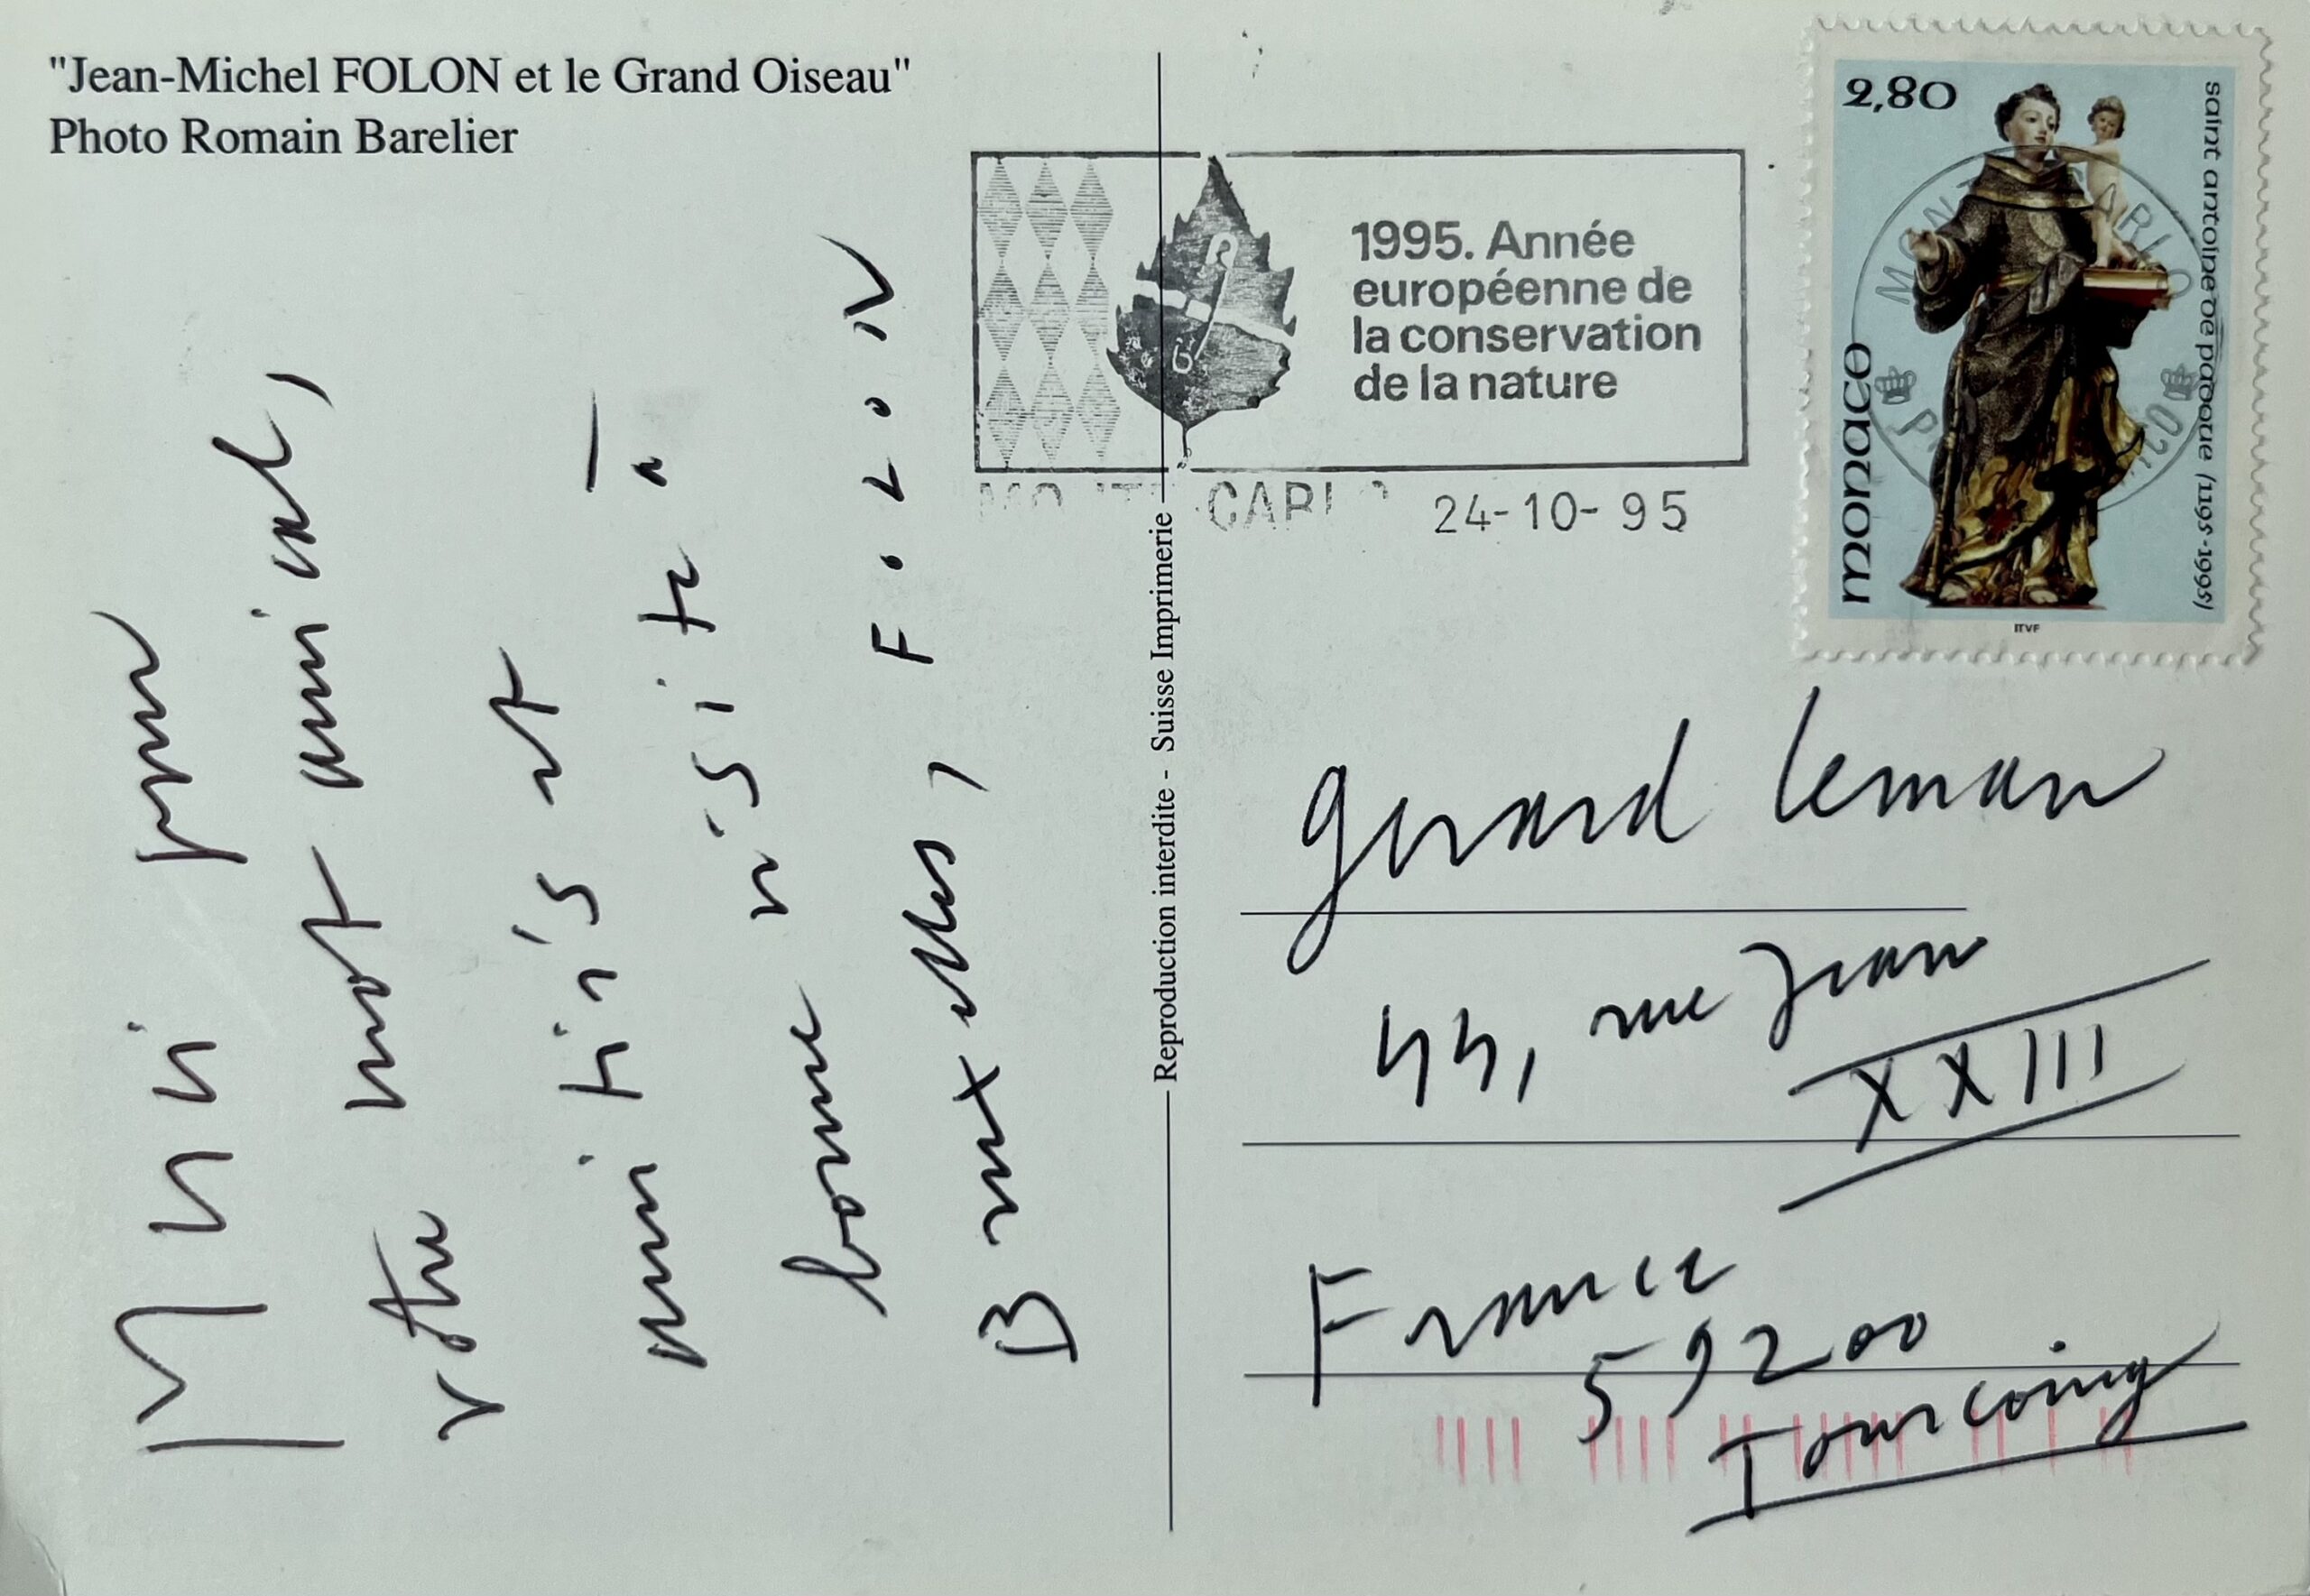 "Jean-Michel FOLON et le Grand Oiseau"
Photo Romain Barelier
Merci pour
votre mot amical,
amitiés et
bonne visite à
Bruxelles, FOLON
Reproduction interdite - Suisse Imprimerie
1995. Année
européenne de
la conservation
de la nature
MONTE-CARLO 24-10-95
2,80
monaco
saint antoine de padoue (1195-1995)
ITVF
MONTE CARLO
gerard leman
44, rue Jean
XXIII
France
59200
Tourcoing